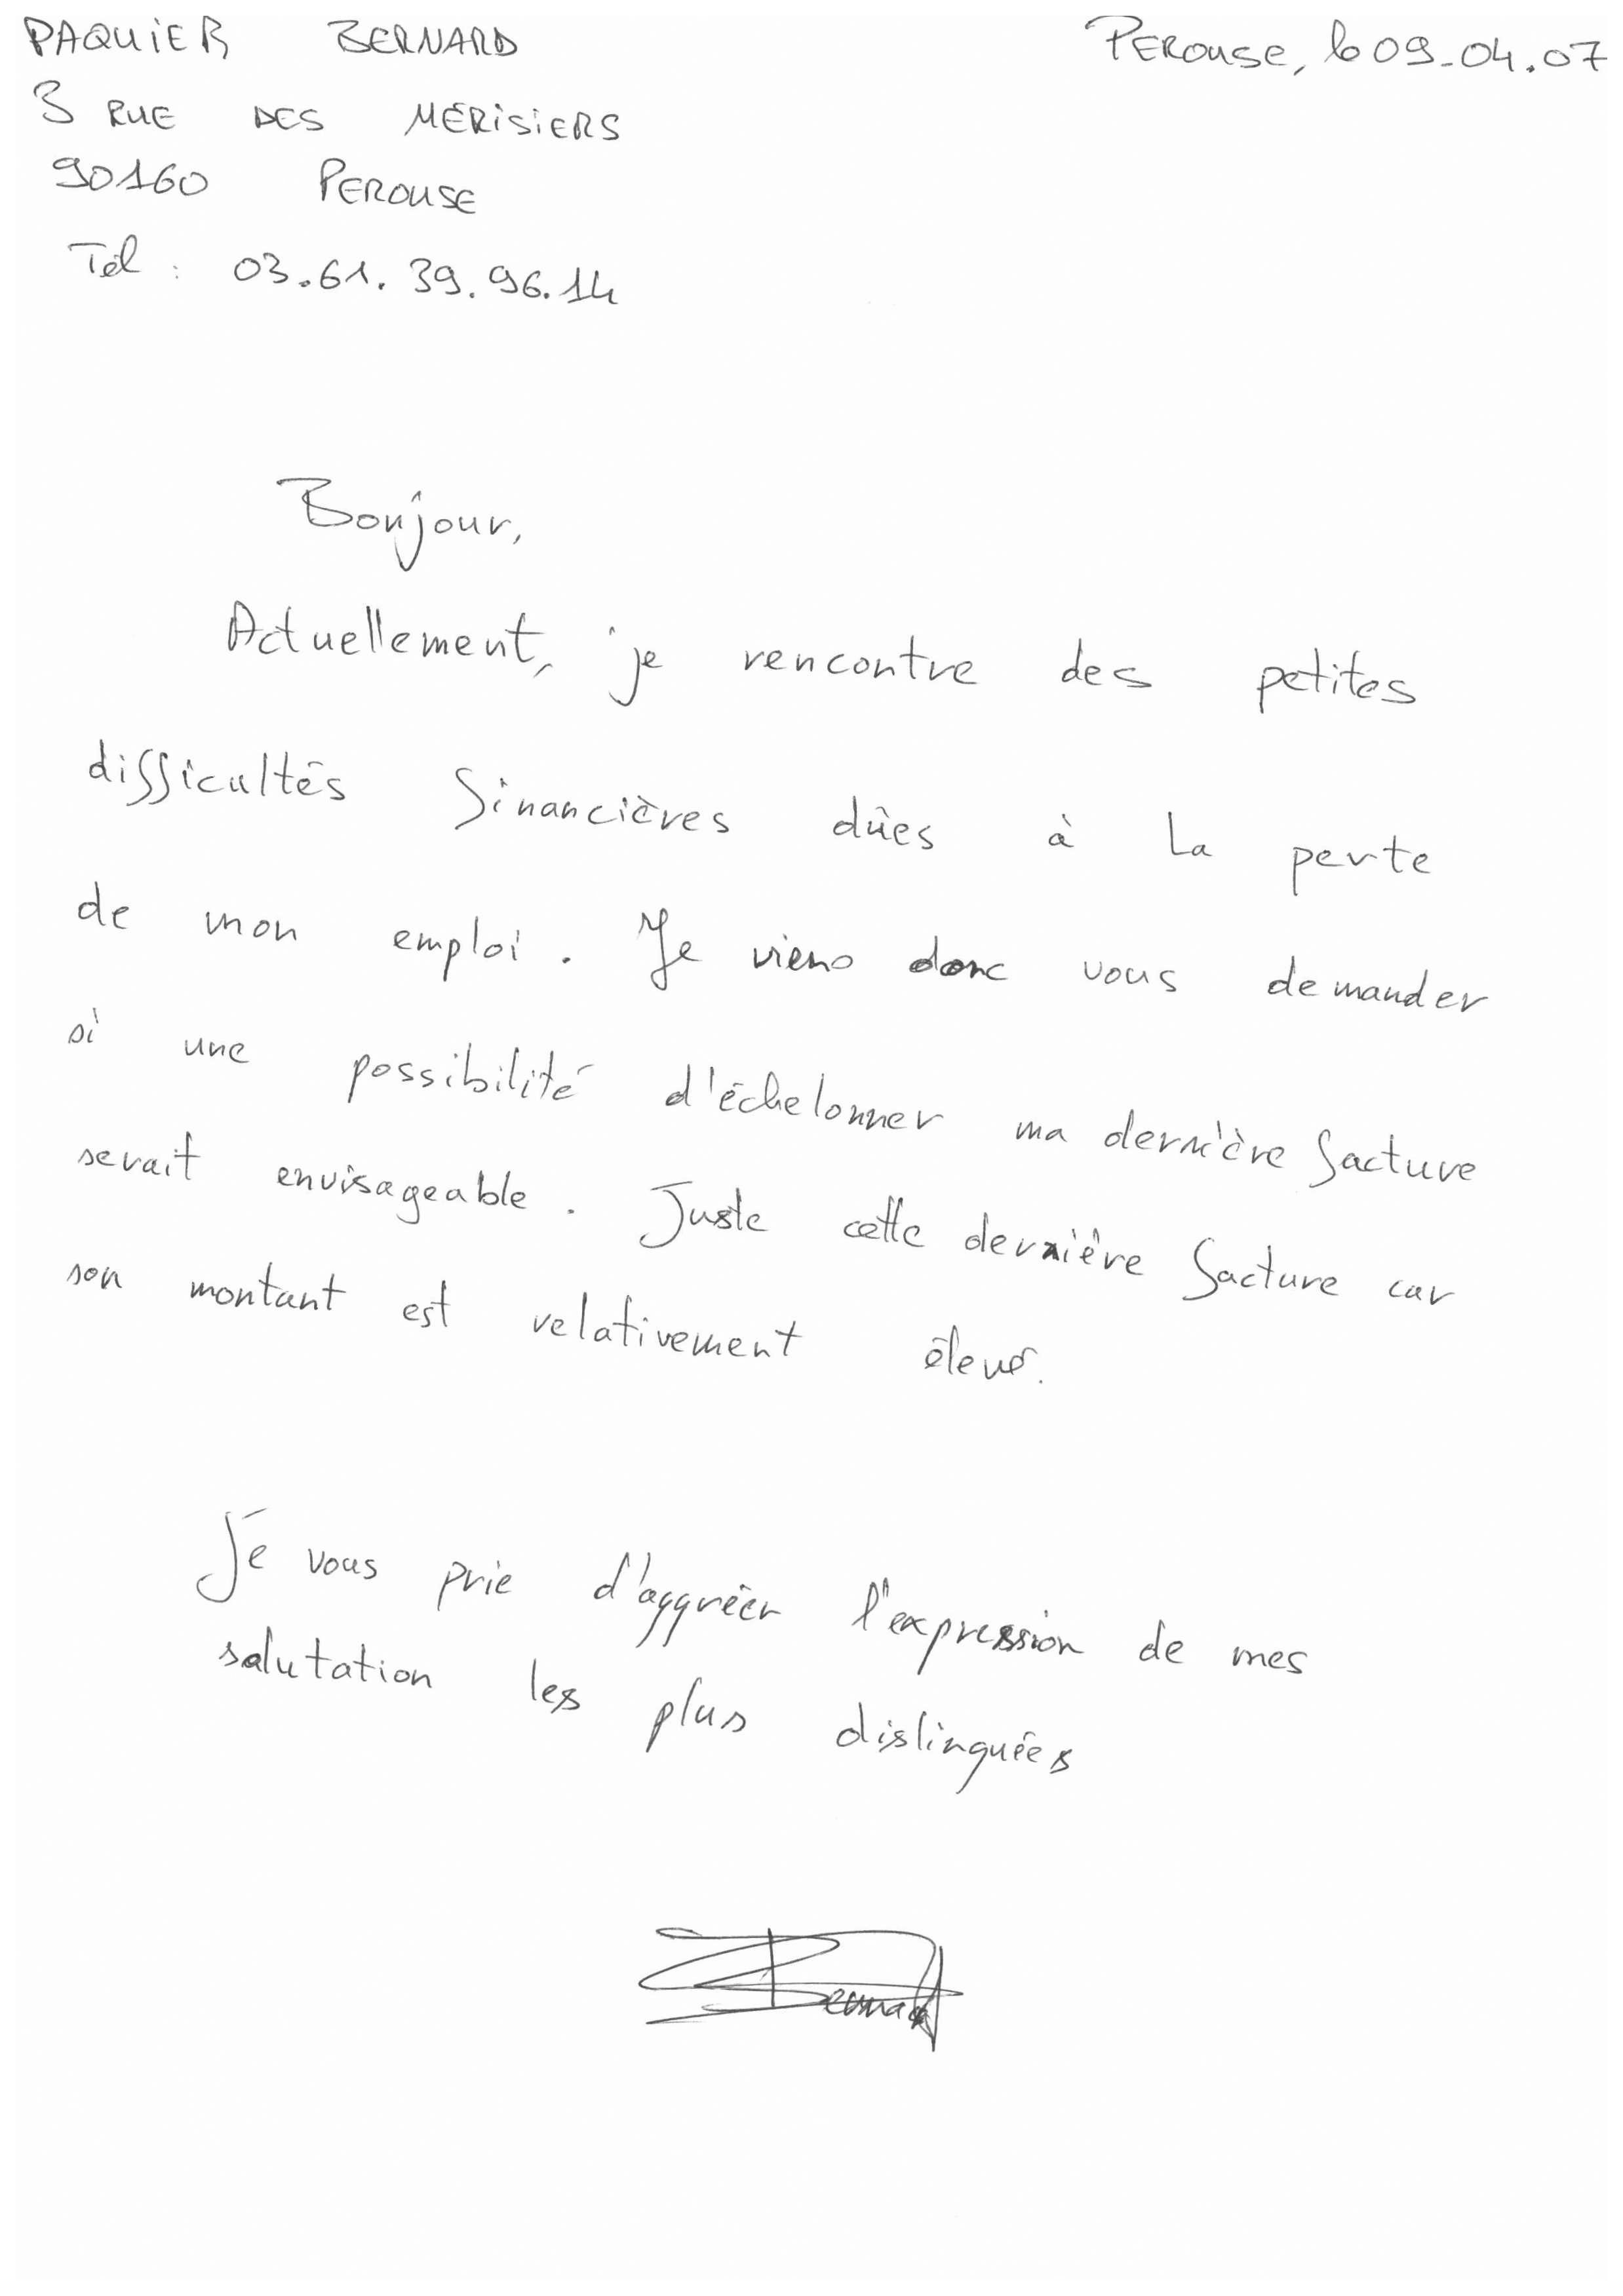 PAQUIER BERNARD
Perouse, le 09-04.07
3 RUE DES MERISIERS
90160 PEROUSE
Tél : 03.61.39.96.14
Bonjour,
Actuellement, je rencontre des petites
difficultés financières dûes à la perte
de mon emploi. Je viens donc vous demander
si une possibilité d'échelonner ma dernière facture
serait envisageable. Juste cette dernière facture car
son montant est relativement élevé.
Je vous prie d'aggréer l'expression de mes
salutation les plus distinguées
Bernard